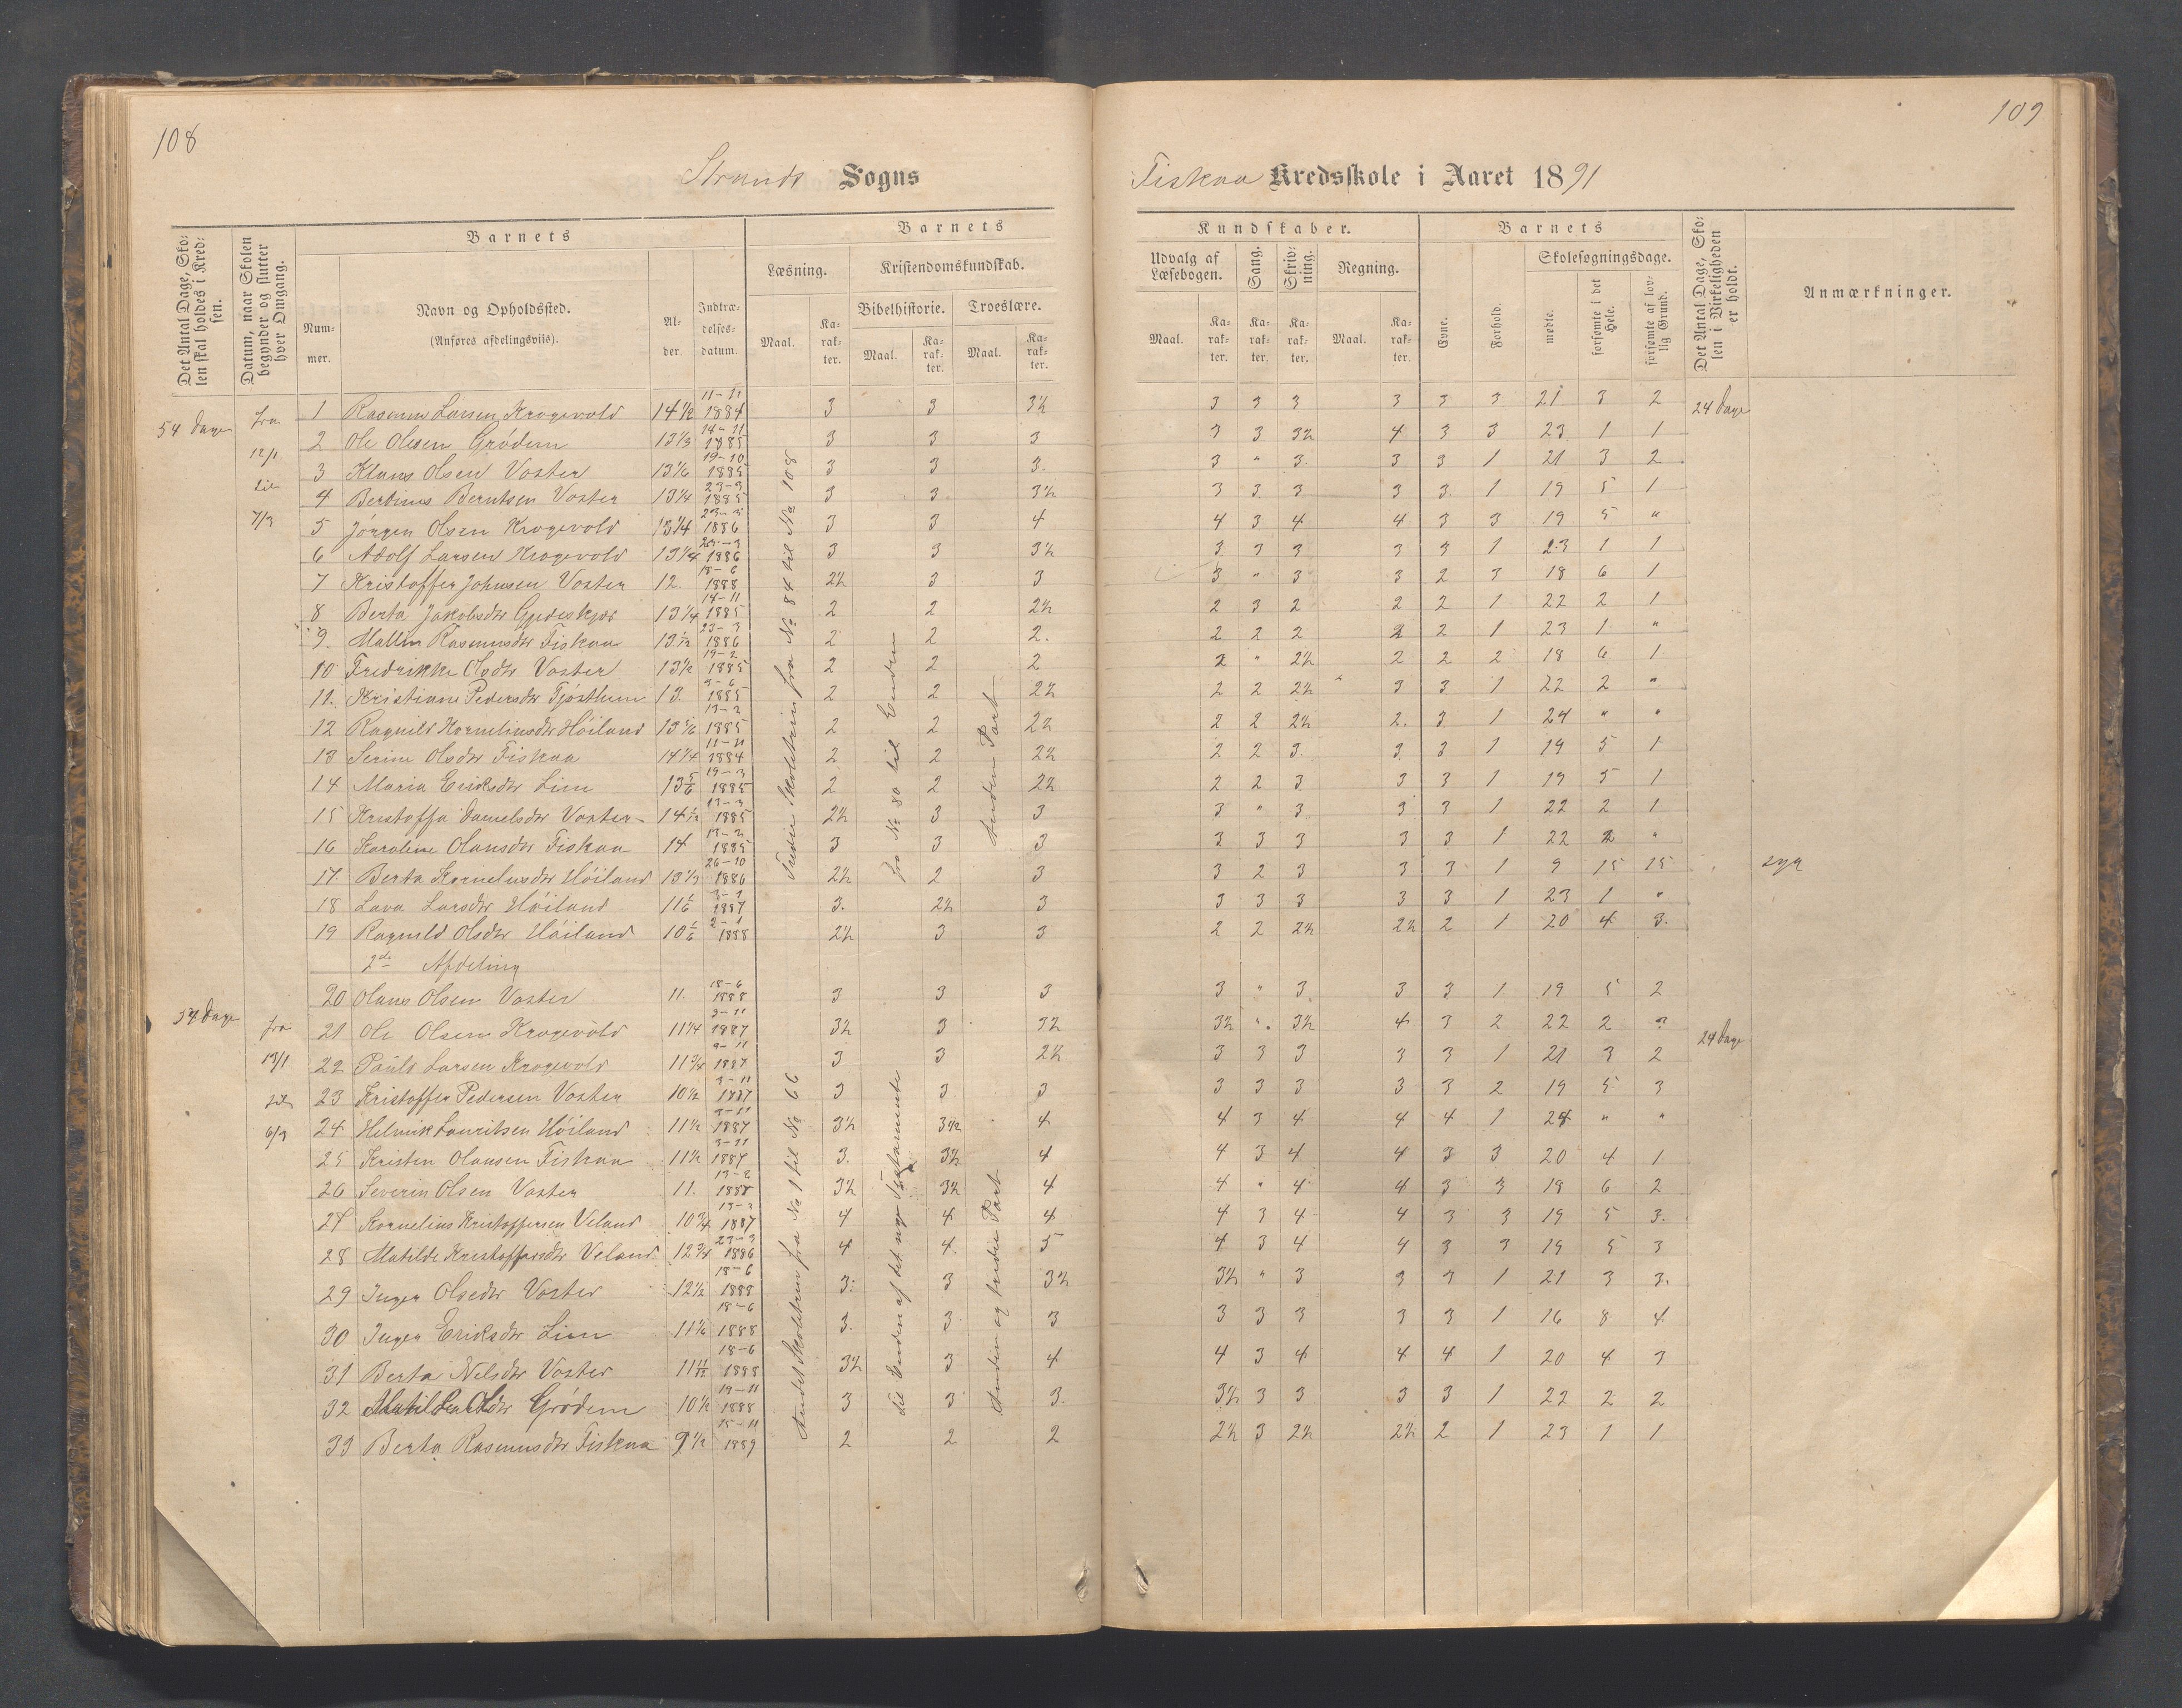 108
109
Strands Sogns
Fiskaa Kredsskole i Aaret 1891
Det Antal Dage, Skolen skal holdes i Kredsen.
Datum, naar Skolen begynder og slutter hver Omgang.
Barnets
Nummer.
Navn og Opholdssted.
(Anføres afdelingsviis).
Alder.
Indtrædelsesdatum.
Barnets
Læsning.
Kristendomskundskab.
Bibelhistorie. Troeslære.
Maal. Karakter. Maal. Karakter. Maal. Karakter.
Kundskaber.
Udvalg af Læsebogen. Sang. Skrivning. Regning.
Maal. Karakter. Karakter. Karakter. Maal. Karakter.
Barnets
Evne. Forhold.
Skolesøgningsdage.
mødte. forsømte i det Hele. forsømte af lovlig Grund.
Det Antal Dage, Skolen i Virkeligheden er holdt.
Anmærkninger.
54 Dage fra 12/1 til 7/3
1 Rasmus Larsen Krogevold 14½ 11-11 1884 3 3 3½ 3 3 3 3 3 3 21 3 2 24 Dage
2 Ole Olsen Grødem 13⅓ 14-11 1885 3 3 3 3 3 3½ 4 3 3 23 1 1
3 Klaus Olsen Voster 13⅙ 19-10 1885 3 3 3. 3 " 3. 3 3 1 21 3 2
4 Bertinus Berntsen Voster 13¼ 23-3 1885 3 3 3½ 3 3 3 3 3. 1 19 5 1
5 Jörgen Olsen Krogevold 13¼ 23-3 1886 3 3 4 4 3 4 4 3 3 19 5 "
6 Adolf Larsen Krogevold 13¼ 1886 3 3 3½ 3 3 3 3 3 1 23 1 1
7 Kristoffer Johnsen Voster 12. 18-6 1888 2½ 3 3 3 " 3 3 2 3 18 6 1
8 Berta Jakobsdtr 13¼ 14-11 1885 2 2 2½ 2 3 2 2 2 1 22 2 1
9. Mallin Rasmusdtr Fiskaa 23-3 1886 2 2 2. 2 2 2 2 2 1 23 1 "
10 Fredrikke Olsdtr Voster 13½ 19-2 1885 2 2 2 2 " 2½ 2 2 2 18 6 1
11. Kristiane Pedersdtr Tjøstheim 13. 1885 2 2 2½ 2 2 2½ " 3 3 1 22 2 "
12 Ragnild Kornelinsdtr Höiland 13⅚ 13-2 1885 2 2 2½ 2 2 2½ 2. 3 1 24 " "
13 Serine Olsdtr Fiskaa 14¼ 11-11 1884 2 2 2½ 2 2 3. 3 3 1 19 5 1
14 Maria Eriksdtr Lim 13⅚ 19-3 1885 2 2 2½ 2 2 3 3 3 1 19 5 1
15 Kristoffa Danielsdtr Voster 13-3 1885 2½ 3 3 3 " 3 3 3 1 22 2 1
16 Karoline Olausdtr Fiskaa 14 1885 3 3 3 3 3 3 3 3 1 22 2 "
17. Berta Kornelinsdtr Höiland 13⅓ 26-10 1886 2½ 2 3 3 2 3 3 3 1 9 15 15 syg
18 Lava Larsdtr Höiland 11⅙ 1887 3. 2½ 3 3 3 3 3 3 1 23 1 "
19 Ragnild Olsdtr Höiland 10⅙ 2-1 1888 2½ 3 3 2 2 2½ 2½ 2 1 20 4 3.
2de Afdeling
54 Dage fra 13/1 til 6/3
20 Olaus Olsen Voster 11. 18-6 1888 3 3 3 3 " 3 3 3 1 19 5 2
21 Ole Olsen Krogevold 11¼ 3-11 1887 3½ 3 3½ 3½ ". 3½ 4 3 2 22 2 24 Dage
22 Pauls Larsen Krogevold 11¾ 9-11 1887 3 3 2½ 3 3 3 3 3 1 21 3 2
23 Kristoffer Pedersen Voster 10½ 3-11 1887 3 3 3 3 3 3 3 3 2 19 5 3
24 Helmik Lauritsen Höiland 11½ 1887 3½ 3½ 4 4 3 4 4 4 1 24 " "
25 Kristen Olausen Fiskaa 11½ 3-11 1887 3. 3½ 4 4 3 4 4 3 3 20 4 1
26 Severin Olsen Voster 11. 13-2 1888 3½ 3½ 4 4 " 4 4 3 3 18 6 2
27 Kornelius Kristoffersen Veland 10¾ 1887 4 4 4 4 3 4 4 3 3 19 5 3.
28 Matilde Kristoffersdtr Veland 12¾ 23-3 1886 4 4. 5 4 3 4 4 3 3 19 5 3
29 Inger Olsedtr Voster 12½ 18-6 1888 3. 3 3½ 3½ " 3 3 3 1 21 3 3.
30 Inger Eriksdtr Lim 11⅙ 18-6 1888 3. 3 3 3 3 3 3 3 1 16 8 4
31 Berta Nilsdtr Voster 18-6 1888 3½ 3 4 4 3 4 4 4 1 20 4 3
32 Matilda Olsdtr Grödem 10½ 19-11 1888 3 3 3. 3½ 3 3 3 3 1 22 2 2
33 Berta Rasmusdtr Fiskaa 9½ 15-11 1889 2 2 2 2½ 3 2½ 2½ 2 1 23 1 1
Tredie Skoletrin fra No 84 til No 108
fra No 80 til Enden
Anden Part
Andet Skoletrin fra No 1 til No 66
til Enden af det nye Testamente
Anden og tredie Part